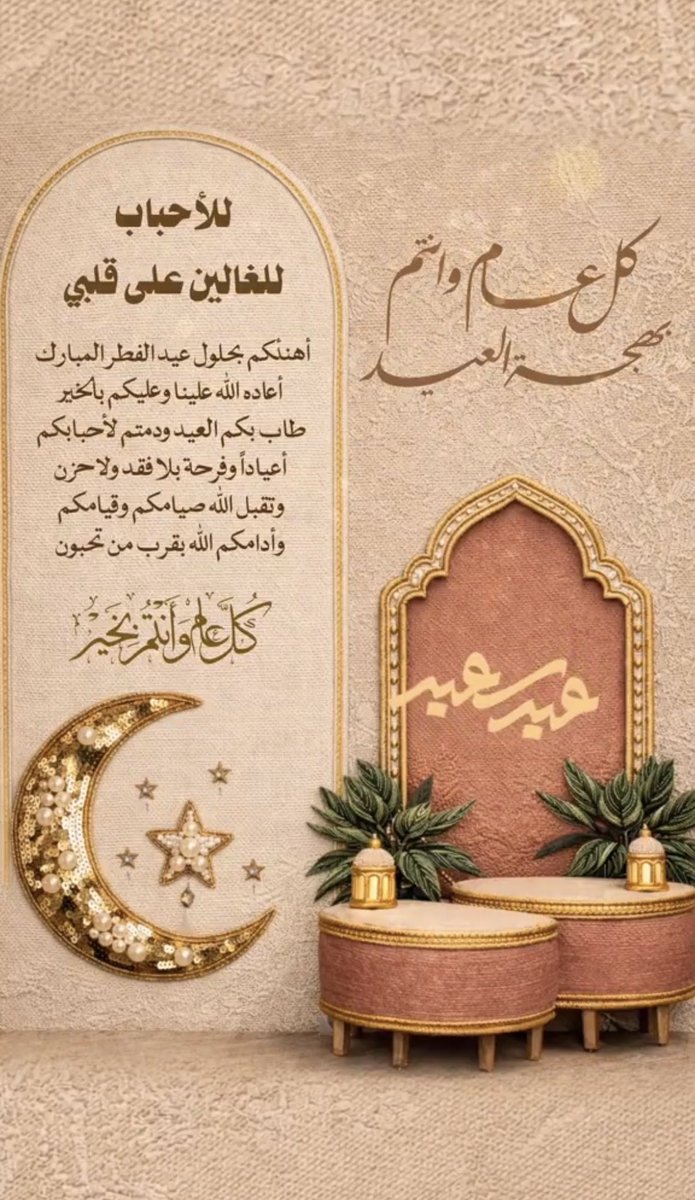 كل عام وانتم
بهجة العيد
للأحباب
للغالين على قلبي
أهنئكم بحلول عيد الفطر المبارك
أعاده الله علينا وعليكم بالخير
طاب بكم العيد ودمتم لأحبابكم
أعياداً وفرحة بلا فقد ولا حزن
وتقبل الله صيامكم وقيامكم
وأدامكم الله بقرب من تحبون
كُلَّ عَامٍ وَأَنْتُمْ بِخَيْرٍ
عيد سعيد